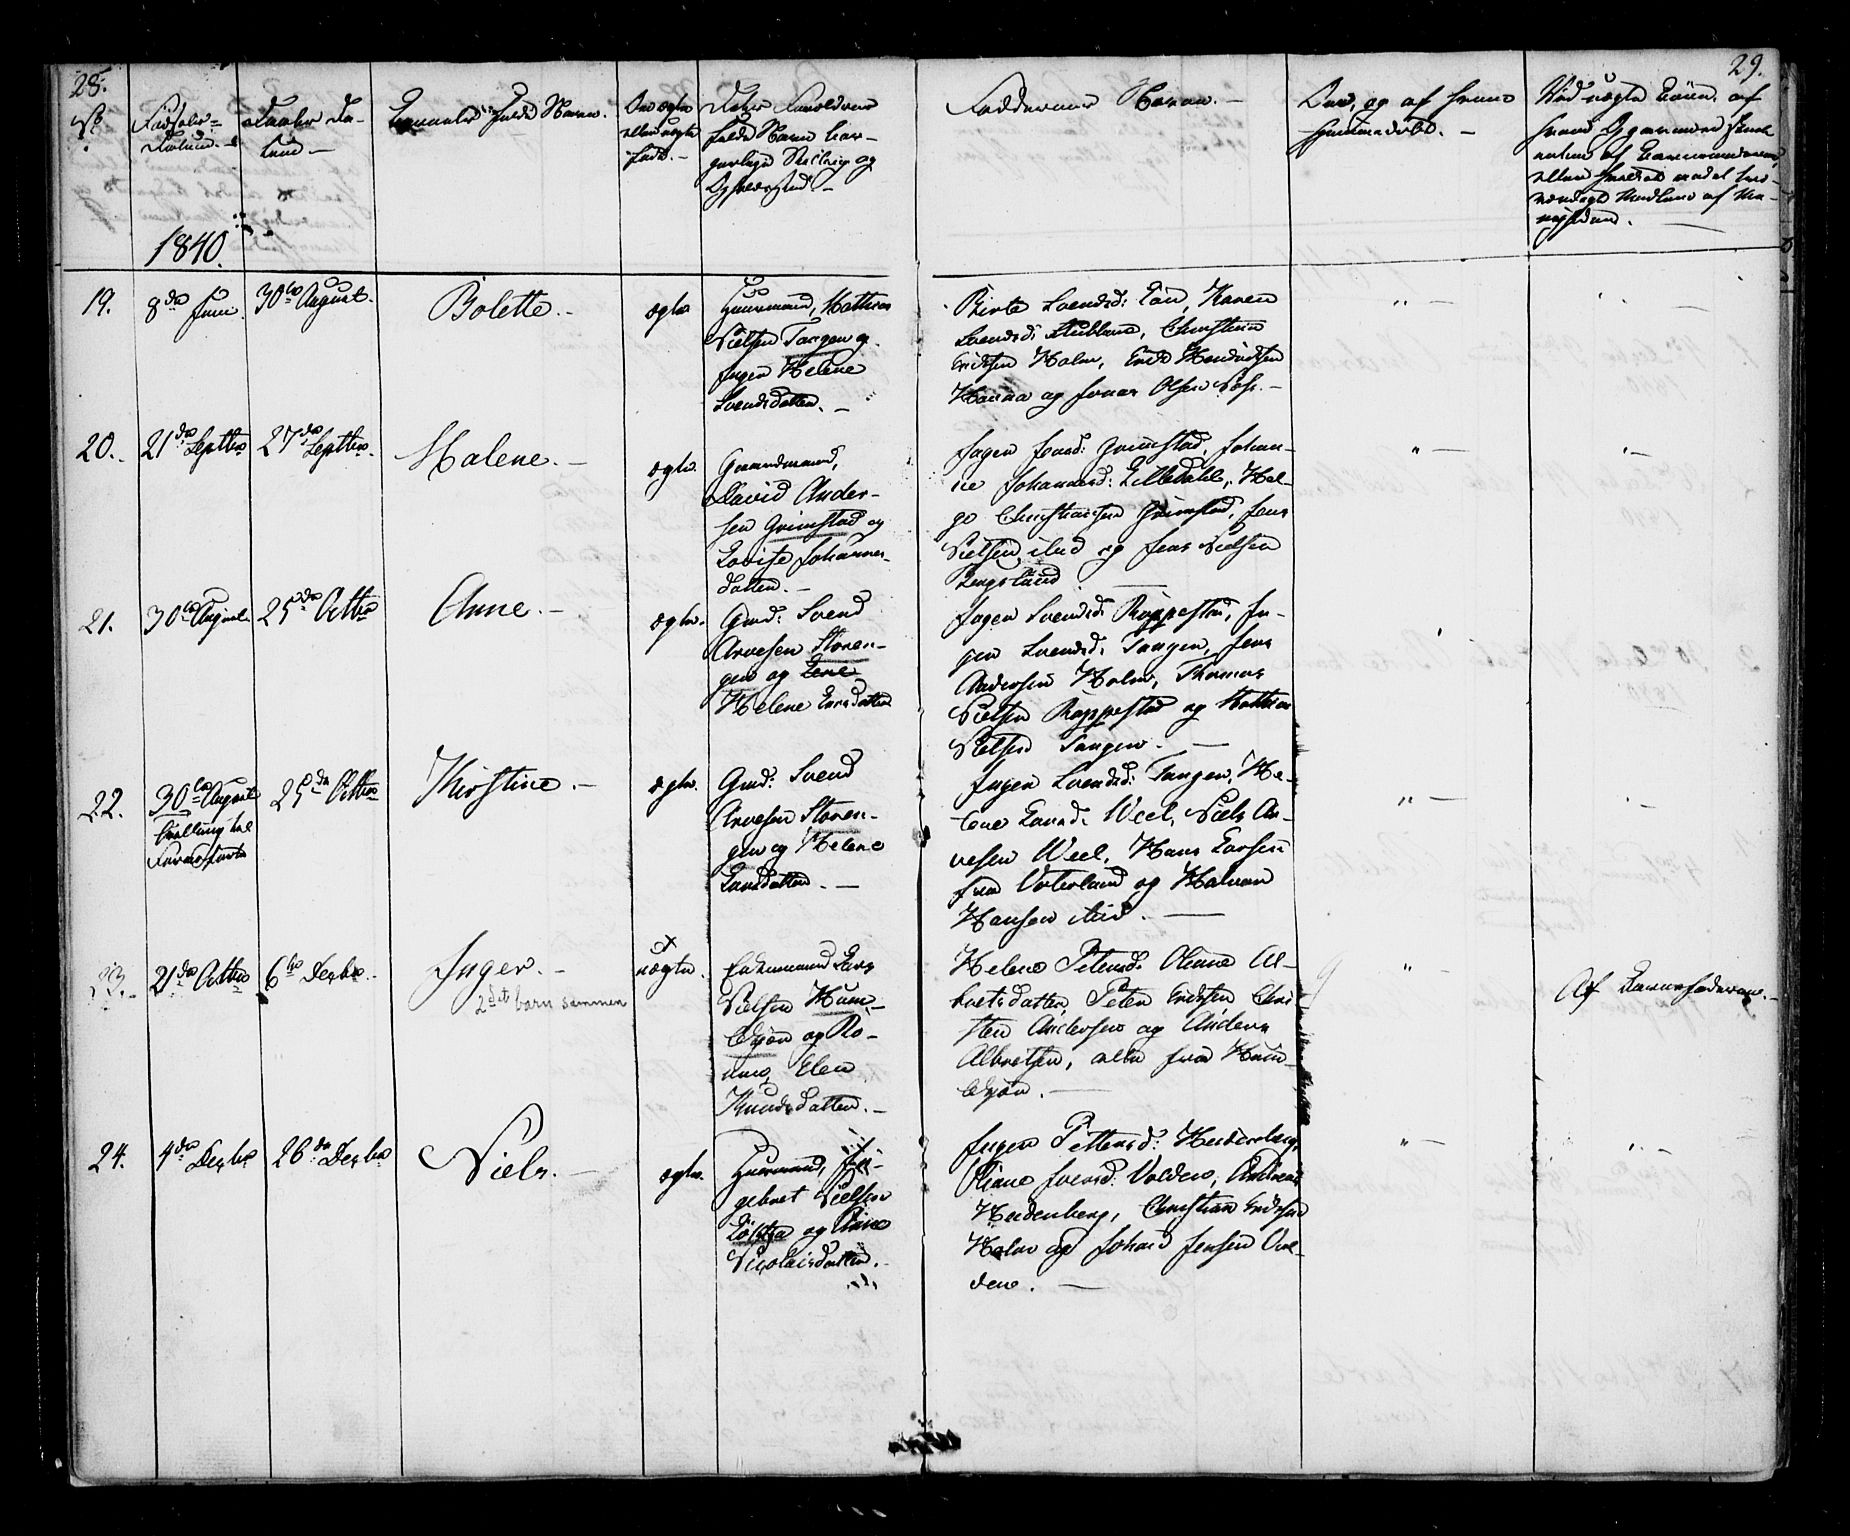 28.
29.
No
Fødsels-
Datum.
Daabs Da-
tum
Barnets fulde Navn.
Om ægte
eller uægte
født.
Begge Forældrenes
fulde Navn bor-
gerlige Stilling og
Opholdssted
Faddernes Navne.
Om, og af hvem
hjemmedøbt.
Ved uægte Børn, af
hvem Opgaven er skeet
enten af Barnemoderen
eller
1840.
19.
8de Juni
30te August.
Bolette.
ægte
Huusmand, Mathias
Nielsen Tangen og
Inger Helene
Svendsdatter.
Birte Svendsd: Karen
Svendsd: Stubland, Christian
Erichsen Holm, Erich Hendrichsen
og Jonas Olsen
20.
21de Septbr
27de Septbr.
Malene.
ægte.
Gaardmand,
David Ander-
sen Grimstad og
Lovise Johannes-
datter.
Inger Jensd: Grimstad, Johan-
ne Johannesd: Lilledahl, Hel-
ge Christiansen Grimstad, Jens
Nielsen ibid og Jens Nielsen
21.
30te August.
25de Octbr
Anne.
ægte.
Gmd: Svend
Arvesen Storen-
gen og Lene
Helene Larsdatter
Inger Svendsd: Roppestad, In-
ger Svendsd: Tangen, Jens
Andersen Holm, Thomas
Nielsen Roppestad og Mathias
Nielsen Tangen.
22.
30te August
tvilling til
25de Octbr
Kirstine.
ægte.
Gmd: Svend
Arvesen Storen-
gen og Helene
Larsdatter.
Inger Svendsd: Tangen, He-
lene Larsd: Weel, Niels Ar-
vesen Weel, Hans Larsen
fra Vesterland og Halvor
Hansen ibid.
23.
21de Octbr
6te Decbr.
Inger.
2det barn sammen
uægte.
Enkemand Lars
Nielsen Hum-
og Ro-
Elen
Knudsdatter.
Helene Petersd: Oliane Al-
bretsdatter, Peter Erichsen Chri-
sten Andersen og Anders
Albretsen, alle fra Hum-
Af Barnefaderen.
24.
4de Decbr
26de Decbr
Niels.
ægte.
Huusmand, In-
gebret Nielsen
og Anne
Nicolaisdatter.
Inger Pettersd: Heidenberg,
Oliane Jversd: Volden, Andreas
Heidenberg, Christian Erichsen
Holm og Johan Jensen Ove-
dene.